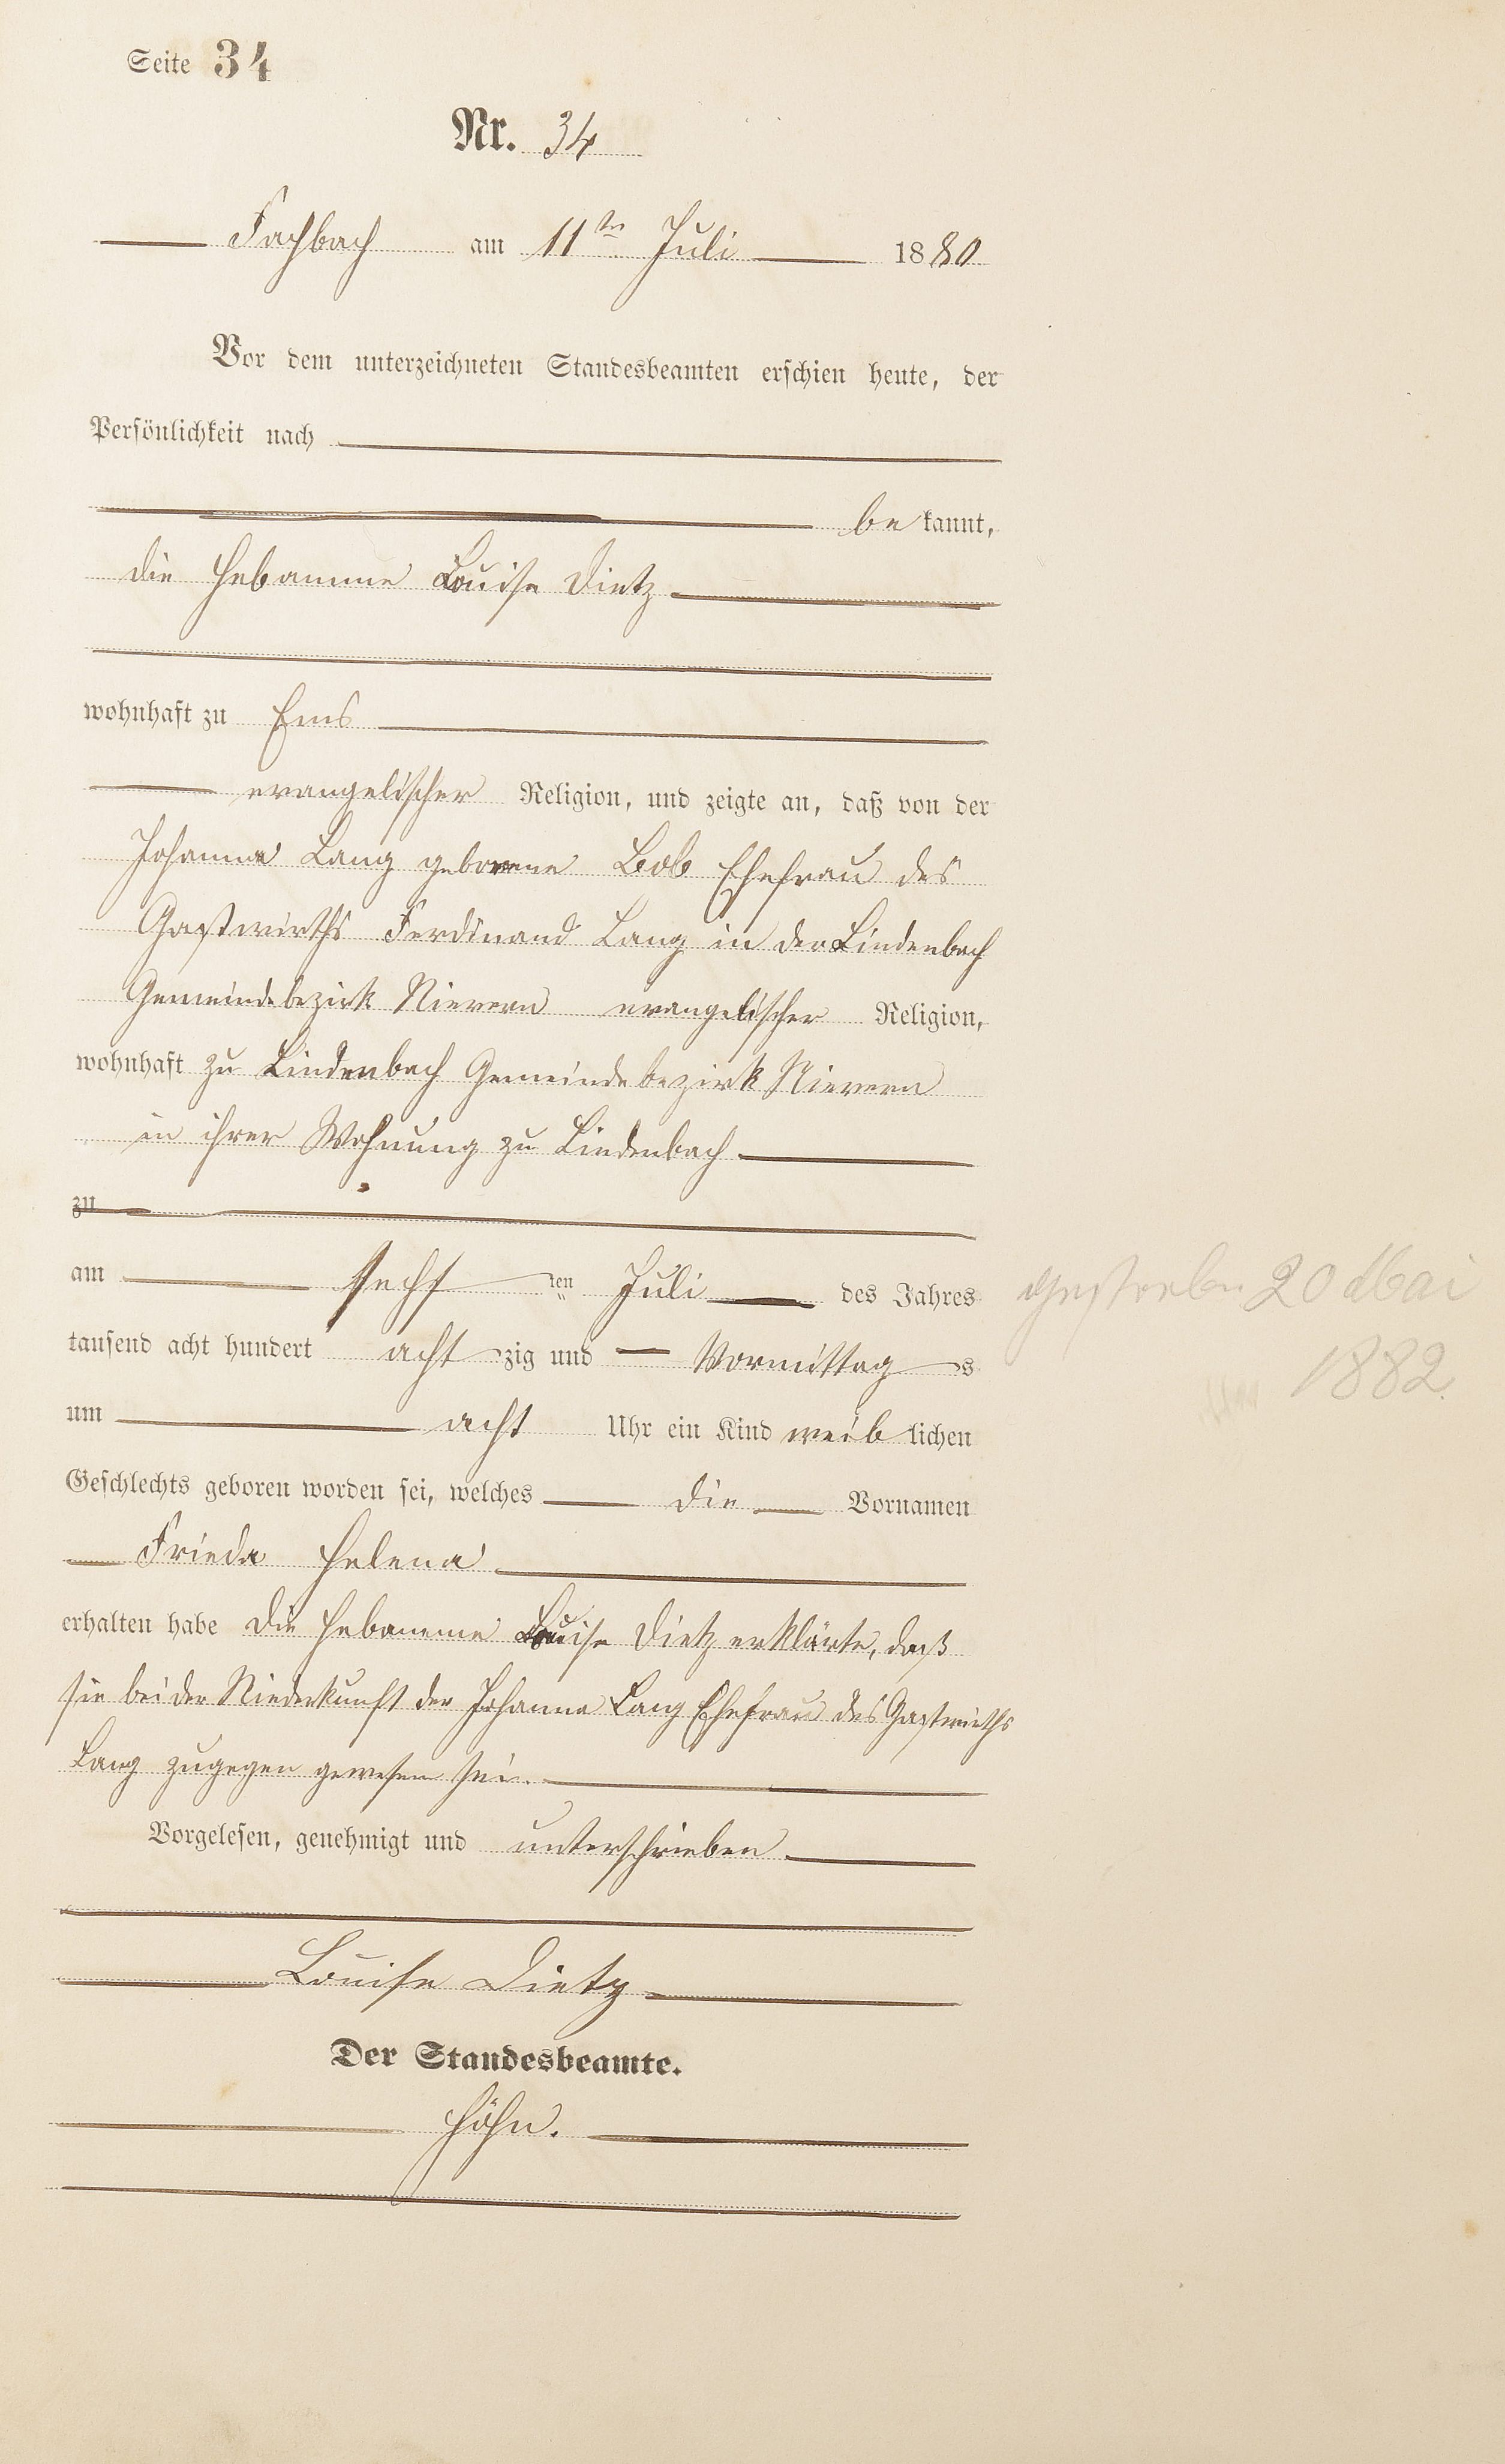 Seite 34
Nr. 34
Fachbach am 11ten Juli 1880
Vor dem unterzeichneten Standesbeamten erschien heute, der
Persönlichkeit nach
bekannt,
die Hebamme Louise Dietz
wohnhaft zu Ems
evangelischer Religion, und zeigte an, daß von der
Johanna Lang geborene Bob Ehefrau des
Gastwirths Ferdinand Lang in der Lindenbach
Gemeindebezirk Nievern evangelischer Religion,
wohnhaft zu Lindenbach Gemeindebezirk Nievern
in ihrer Wohnung zu Lindenbach
zu
am sechsten Juli des Jahres
tausend acht hundert achtzig und Vormittags
um acht Uhr ein Kind weiblichen
Geschlechts geboren worden sei, welches die Vornamen
Frieda Helena
erhalten habe die Hebamme Louise Dietz erklärte, daß
sie bei der Niederkunft der Johanna Lang Ehefrau des Gastwirths
Lang zugegen gewesen sei.
Vorgelesen, genehmigt und unterschrieben
Louise Dietz
Der Standesbeamte.
Höhn.
gestorben 20 Mai
1882.